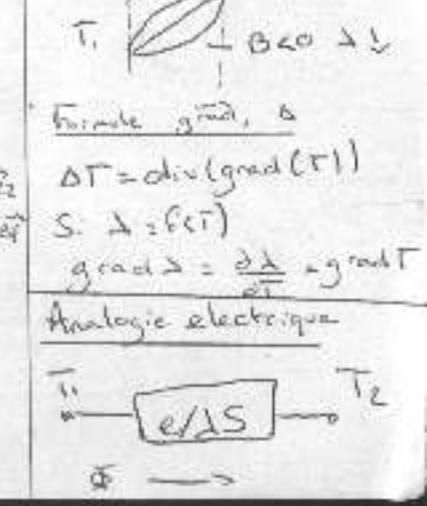 T₁
B<0 λ ↓
Formule grad, Δ
ΔT = div(grad(T))
Si λ = f(T)
grad λ = ∂λ/∂T * grad T
Analogie electrique
T₁ e/λS T₂
Φ →